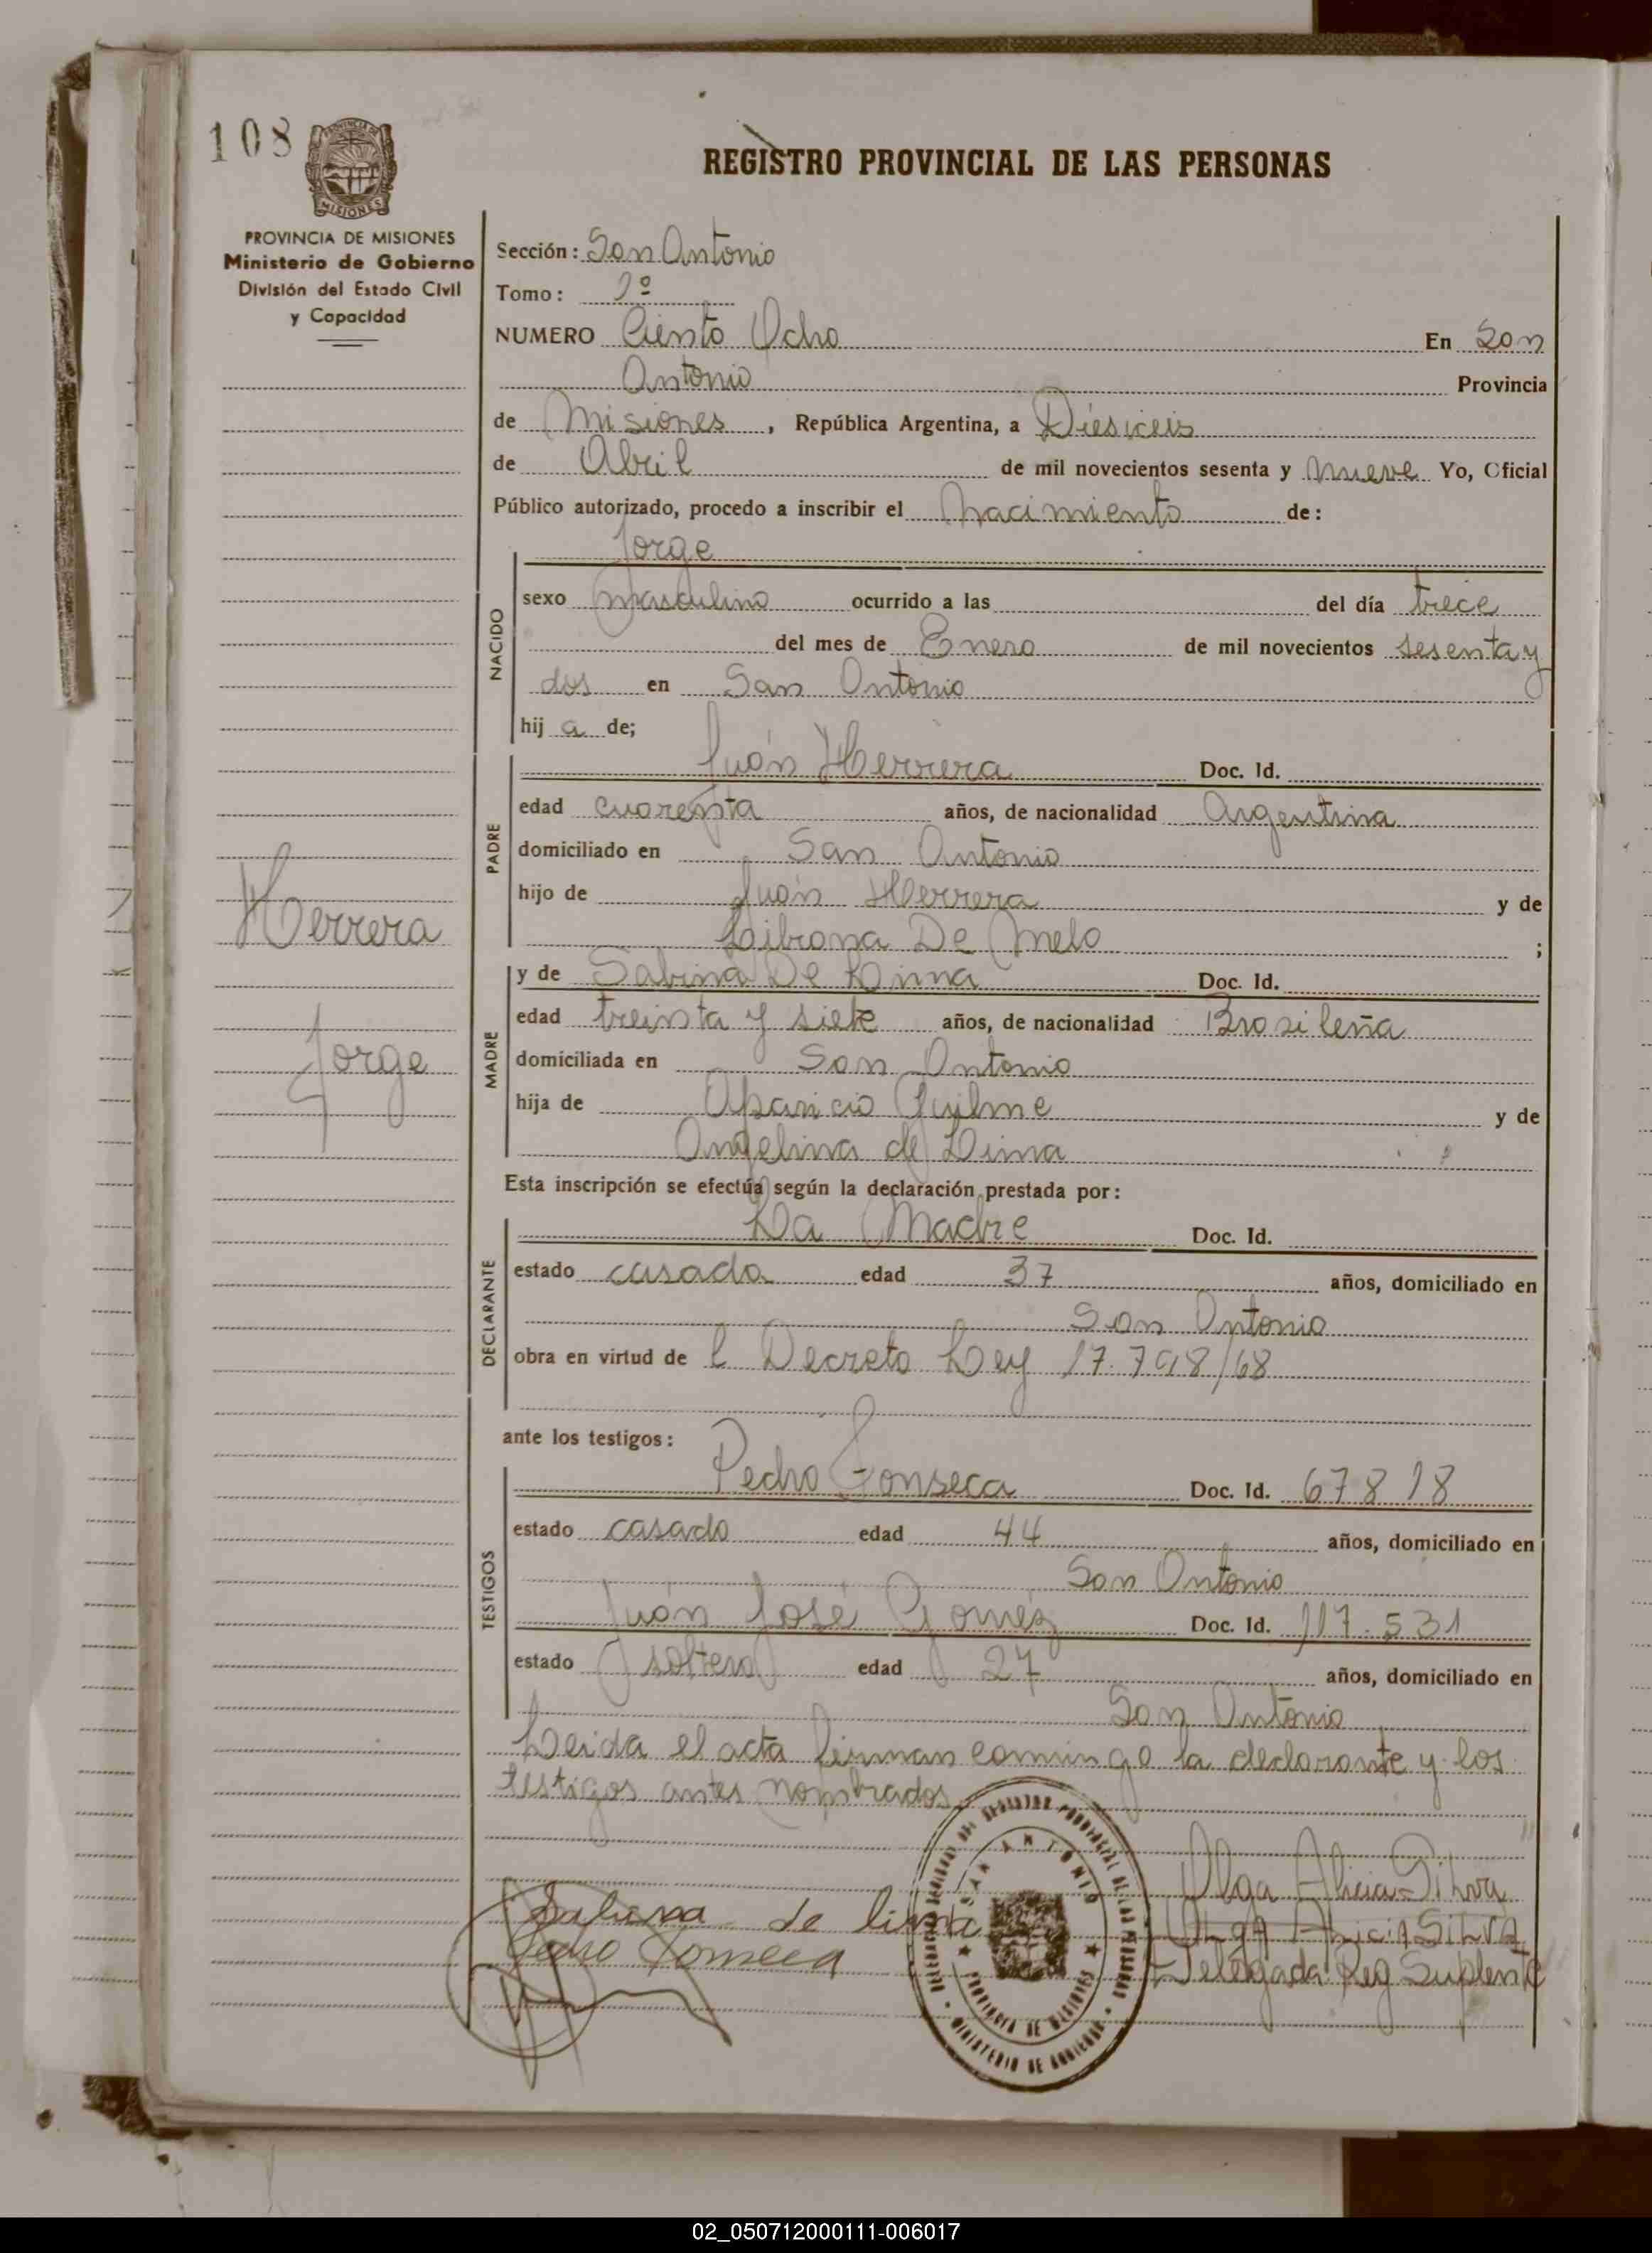 108
REGISTRO PROVINCIAL DE LAS PERSONAS
PROVINCIA DE MISIONES
Ministerio de Gobierno
División del Estado Civil
y Capacidad
Sección: San Antonio
Tomo: 1º
NUMERO Ciento Ocho En San
Antonio Provincia
de Misiones, República Argentina, a Diesiceis
de Abril de mil novecientos sesenta y nueve Yo, Oficial
Público autorizado, procedo a inscribir el nacimiento de:
Jorge
NACIDO
sexo masculino ocurrido a las del día trece
del mes de Enero de mil novecientos sesenta y
dos en San Antonio
hij a de;
PADRE
Juán Herrera Doc. Id.
edad cuarenta años, de nacionalidad Argentina
domiciliado en San Antonio
hijo de Juán Herrera y de
Librona De Melo ;
Herrera
Jorge
MADRE
y de Sabina De Lima Doc. Id.
edad treinta y siete años, de nacionalidad Brasileña
domiciliada en San Antonio
hija de Aparicio y de
Angelina de Lima
Esta inscripción se efectúa según la declaración prestada por:
DECLARANTE
La Madre Doc. Id.
estado casada edad 37 años, domiciliado en
San Antonio
obra en virtud de l Decreto Ley 17.798/68
ante los testigos:
TESTIGOS
Pedro Fonseca Doc. Id. 67818
estado casado edad 44 años, domiciliado en
San Antonio
Juán José Goméz Doc. Id. 117.531
estado soltero edad 27 años, domiciliado en
San Antonio
Leida el acta firman comingo la declarante y los
testigos antes nombrados
Sabina de lima
Pedro Fonseca
Olga Alicia Silva
Olga Alicia Silva
Delegada Reg Suplente
SAN ANTONIO
PROVINCIA DE MISIONES
MINISTERIO DE GOBIERNO
02_050712000111-006017